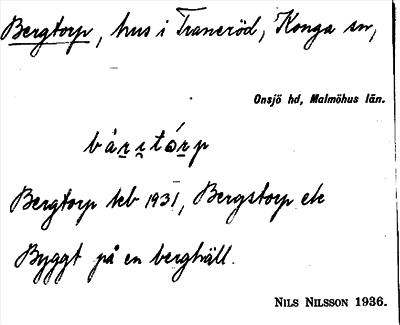 Bergtorp, hus i Traneröd, Konga sn,
Onsjö hd, Malmöhus län.
bårstórp
Bergtorp teb 1931, Bergstorp ek
Byggt på en berghäll.
NILS NILSSON 1936.